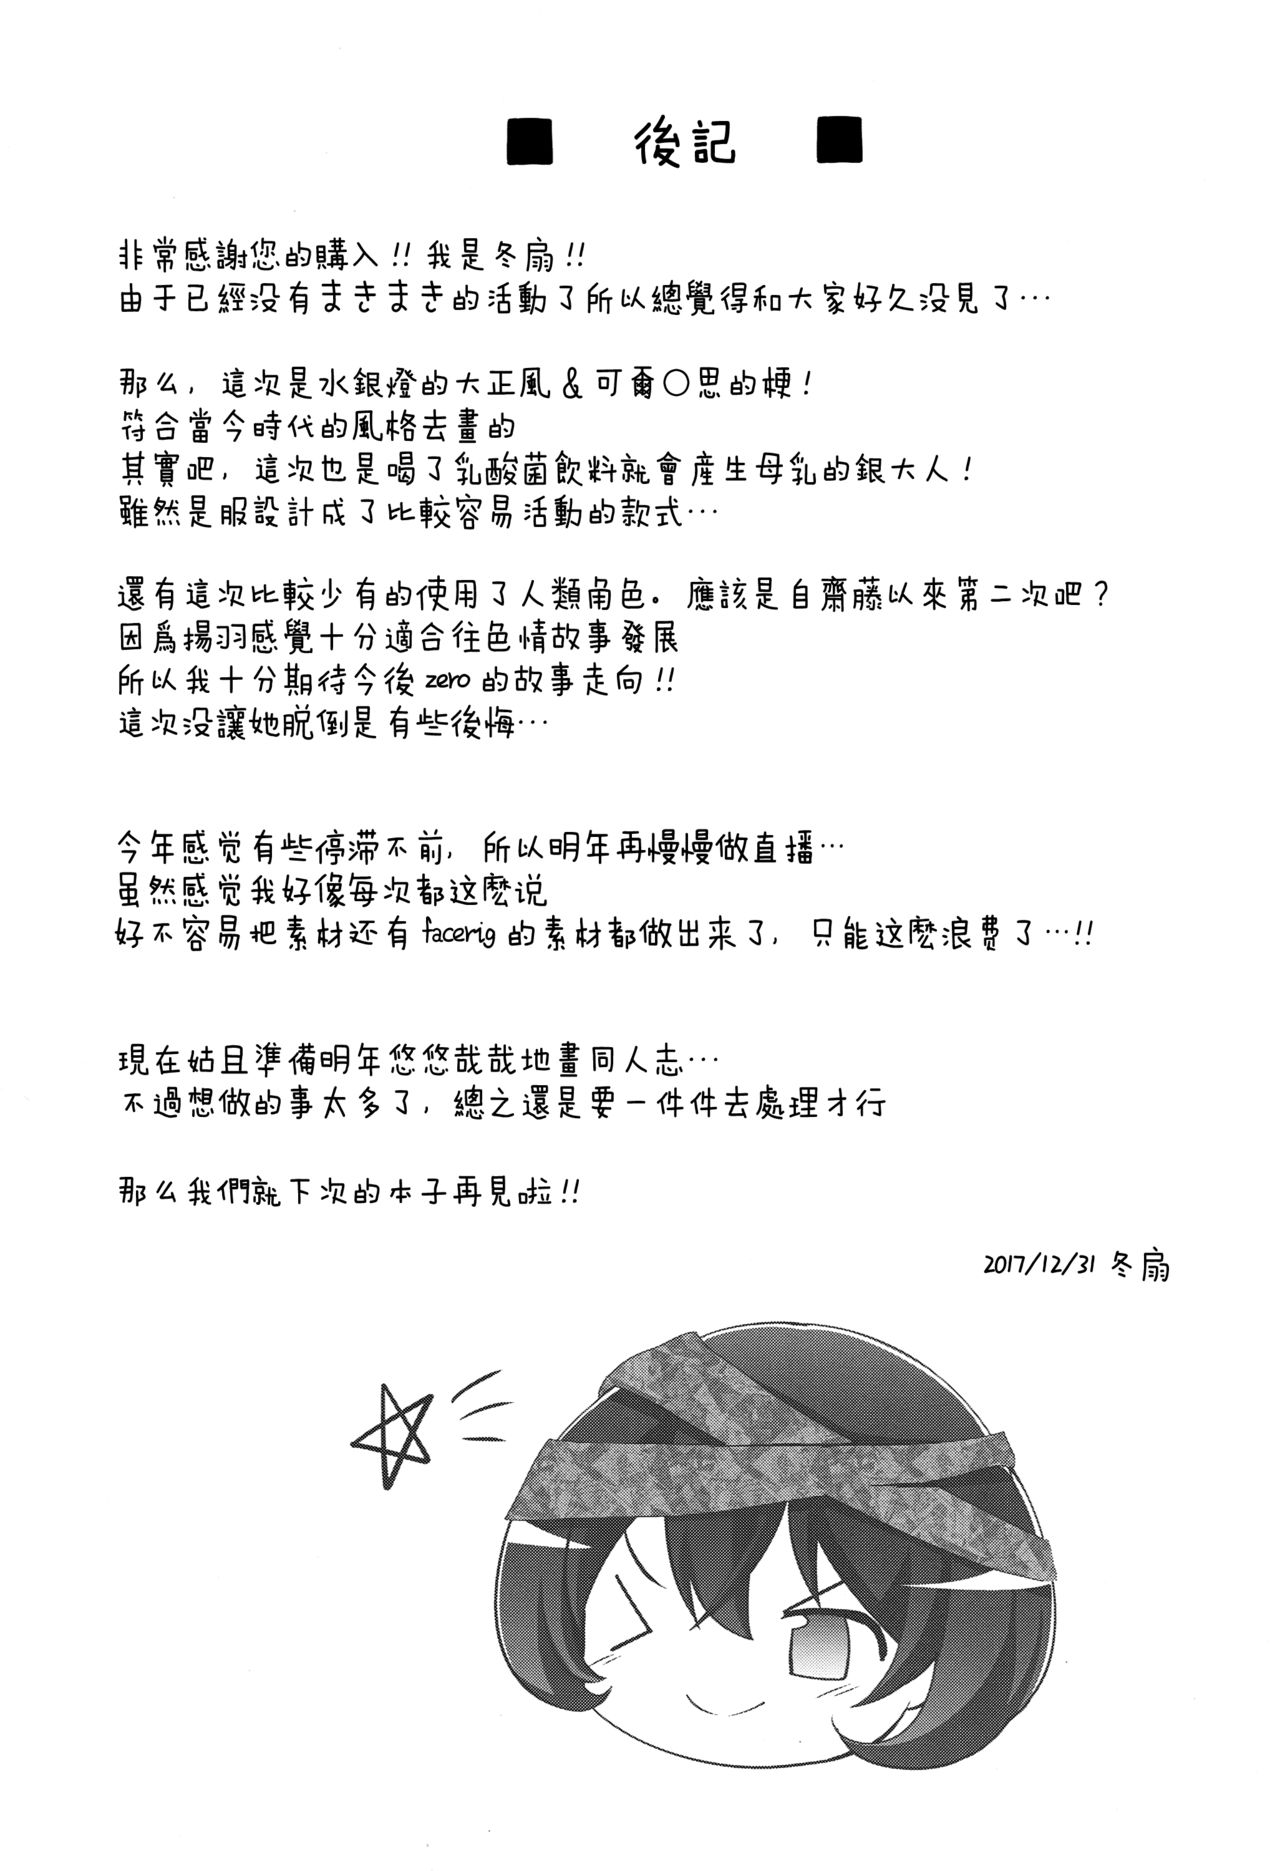 ■ 後記 ■
非常感謝您的購入!! 我是冬扇!!
由于已經没有まきまき的活動了所以總覺得和大家好久没見了…
那么，這次是水銀燈的大正風&可爾〇思的梗!
符合當今時代的風格去畫的
其實吧，這次也是喝了乳酸菌飲料就會産生母乳的銀大人!
雖然是服設計成了比較容易活動的款式…
還有這次比較少有的使用了人類角色。應該是自齋藤以來第二次吧?
因爲揚羽感覺十分適合往色情故事發展
所以我十分期待今後zero的故事走向!!
這次没讓她脱倒是有些後悔…
今年感觉有些停滞不前，所以明年再慢慢做直播…
虽然感觉我好像每次都这麽说
好不容易把素材还有facerig的素材都做出来了，只能这麽浪费了…!!
現在姑且準備明年悠悠哉哉地畫同人志…
不過想做的事太多了，總之還是要一件件去處理才行
那么我們就下次的本子再見啦!!
2017/12/31 冬扇